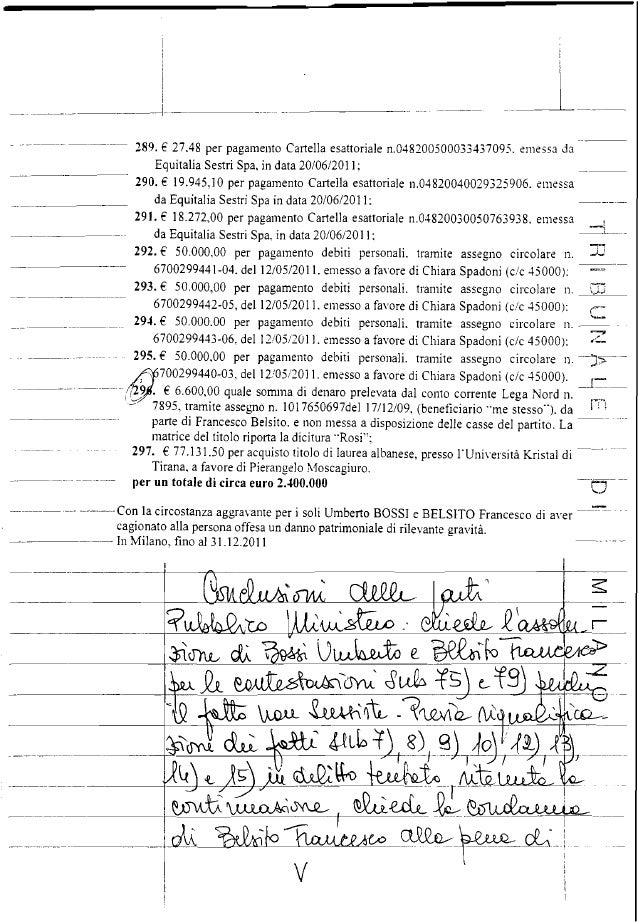 289. € 27,48 per pagamento Cartella esattoriale n.048200500033437095. emessa da
Equitalia Sestri Spa, in data 20/06/2011;
290. € 19.945,10 per pagamento Cartella esattoriale n.04820040029325906. emessa
da Equitalia Sestri Spa in data 20/06/2011;
291. € 18.272,00 per pagamento Cartella esattoriale n.04820030050763938. emessa
da Equitalia Sestri Spa, in data 20/06/2011;
292. € 50.000,00 per pagamento debiti personali. tramite assegno circolare n.
6700299441-04, del 12/05/2011. emesso a favore di Chiara Spadoni (c/c 45000);
293. € 50.000,00 per pagamento debiti personali. tramite assegno circolare n.
6700299442-05, del 12/05/2011. emesso a favore di Chiara Spadoni (c/c 45000);
294. € 50.000.00 per pagamento debiti personali. tramite assegno circolare n.
6700299443-06, del 12/05/2011, emesso a favore di Chiara Spadoni (c/c 45000);
295. € 50.000,00 per pagamento debiti personali. tramite assegno circolare n.
6700299440-03, del 12/05/2011. emesso a favore di Chiara Spadoni (c/c 45000).
296. € 6.600,00 quale somma di denaro prelevata dal conto corrente Lega Nord n.
7895, tramite assegno n. 1017650697del 17/12/09, (beneficiario "me stesso"). da
parte di Francesco Belsito. e non messa a disposizione delle casse del partito. La
matrice del titolo riporta la dicitura "Rosi";
297. € 77.131.50 per acquisto titolo di laurea albanese, presso l'Università Kristal di
Tirana, a favore di Pierangelo Moscagiuro.
per un totale di circa euro 2.400.000
Con la circostanza aggravante per i soli Umberto BOSSI e BELSITO Francesco di aver
cagionato alla persona offesa un danno patrimoniale di rilevante gravità.
In Milano, fino al 31.12.2011
Conclusioni delle parti
Pubblico Ministero: chiede l'assolu-
zione di Bossi Umberto e Belsito Francesco
per le contestazioni sub 75) e 79) perché
il fatto non sussiste - Previa riqualifica-
zione dei fatti sub 7), 8), 9), 10), 12), 13),
14) e 15) in delitto tentato, ritenuta la
continuazione, chiede la condanna
di Belsito Francesco alla pena di
V
TRIBUNALE DI MILANO